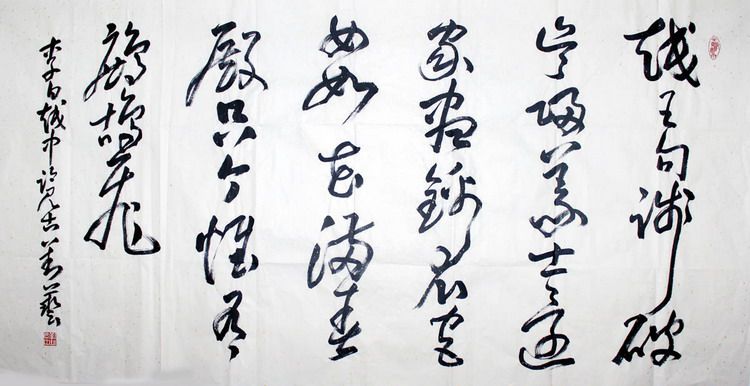 越王句踐破
吳歸義士還
家盡錦衣宮
女如花滿春
殿只今惟有
鷓鴣飛
李白越中覽古